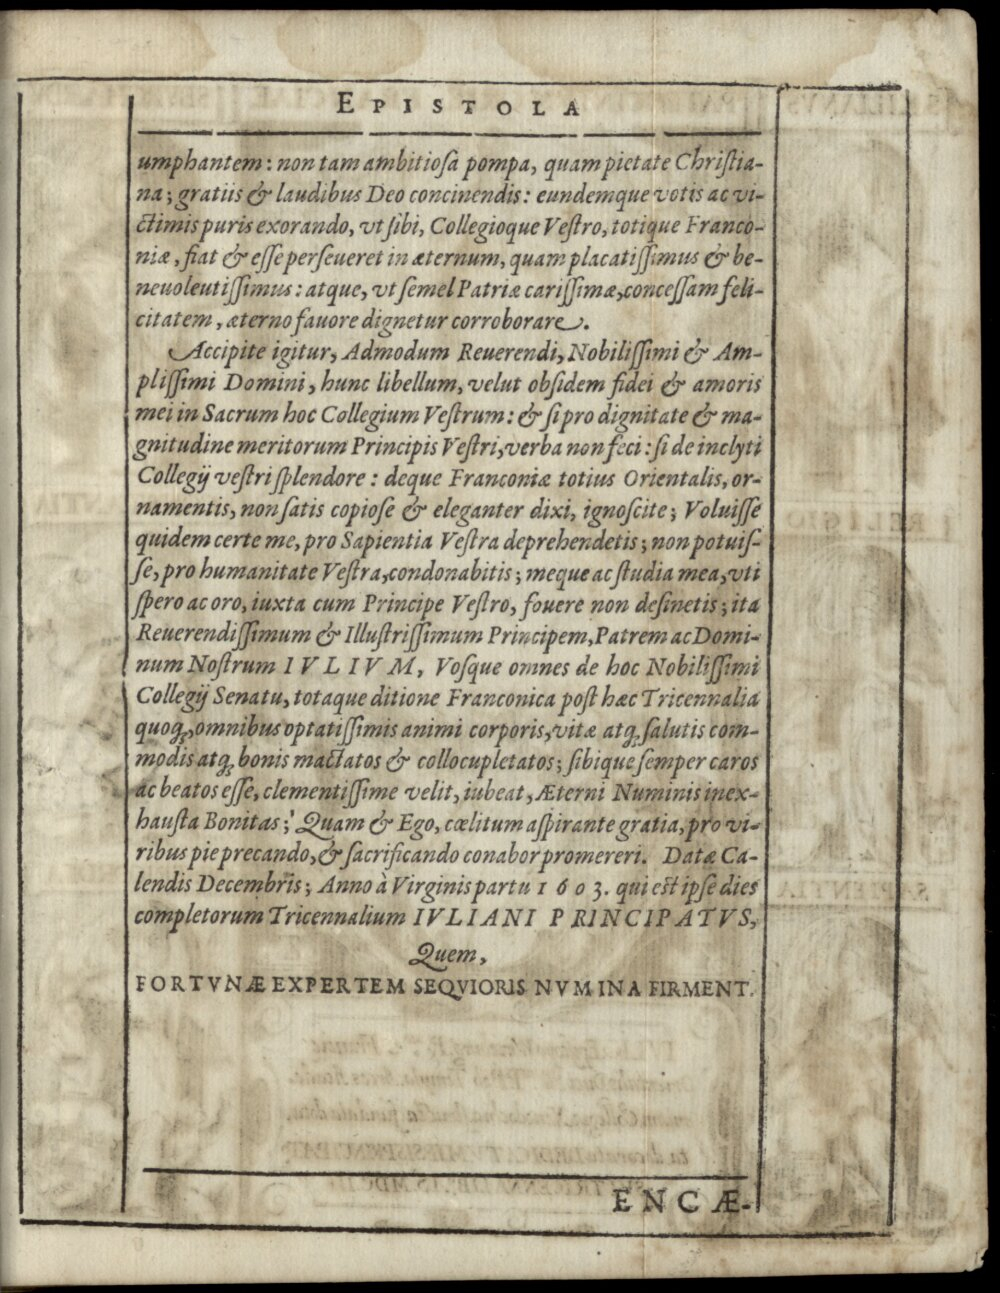 EPISTOLA
umphantem: non tam ambitiosa pompa, quam pietate Christia-
na; gratiis & laudibus Deo concinendis: eundemque votis ac vi-
ctimis puris exorando, vt sibi, Collegioque Vestro, totique Franco-
niæ, fiat & esse perseueret in æternum, quam placatissimus & be-
neuoleutissimus: atque, vt semel Patriæ carissimæ, concessam feli-
citatem, æterno fauore dignetur corroborare.
Accipite igitur, Admodum Reuerendi, Nobilissimi & Am-
plissimi Domini, hunc libellum, velut obsidem fidei & amoris
mei in Sacrum hoc Collegium Vestrum: & si pro dignitate & ma-
gnitudine meritorum Principis Vestri, verba non feci: si de inclyti
Collegij vestri splendore: deque Franconiæ totius Orientalis, or-
namentis, non satis copiose & eleganter dixi, ignoscite; Voluisse
quidem certe me, pro Sapientia Vestra deprehendetis; non potuis-
se, pro humanitate Vestra, condonabitis; meque ac studia mea, vti
spero ac oro, iuxta cum Principe Vestro, fouere non desinetis; ita
Reuerendissimum & Illustrissimum Principem, Patrem ac Domi-
num Nostrum IVLIVM, Vosque omnes de hoc Nobilissimi
Collegij Senatu, totaque ditione Franconica post hæc Tricennalia
quoq;, omnibus optatissimis animi corporis, vitæ atq; salutis com-
modis atq; bonis mactatos & collocupletatos; sibique semper caros
ac beatos esse, clementissime velit, iubeat, Æterni Numinis inex-
hausta Bonitas; Quam & Ego, cælitum aspirante gratia, pro vi-
ribus pie precando, & sacrificando conabor promereri. Datæ Ca-
lendis Decembris; Anno à Virginis partu 1603. qui est ipse dies
completorum Tricennalium IVLIANI PRINCIPATVS,
Quem,
FORTVNÆ EXPERTEM SEQVIORIS NVMINA FIRMENT.
ENCÆ-